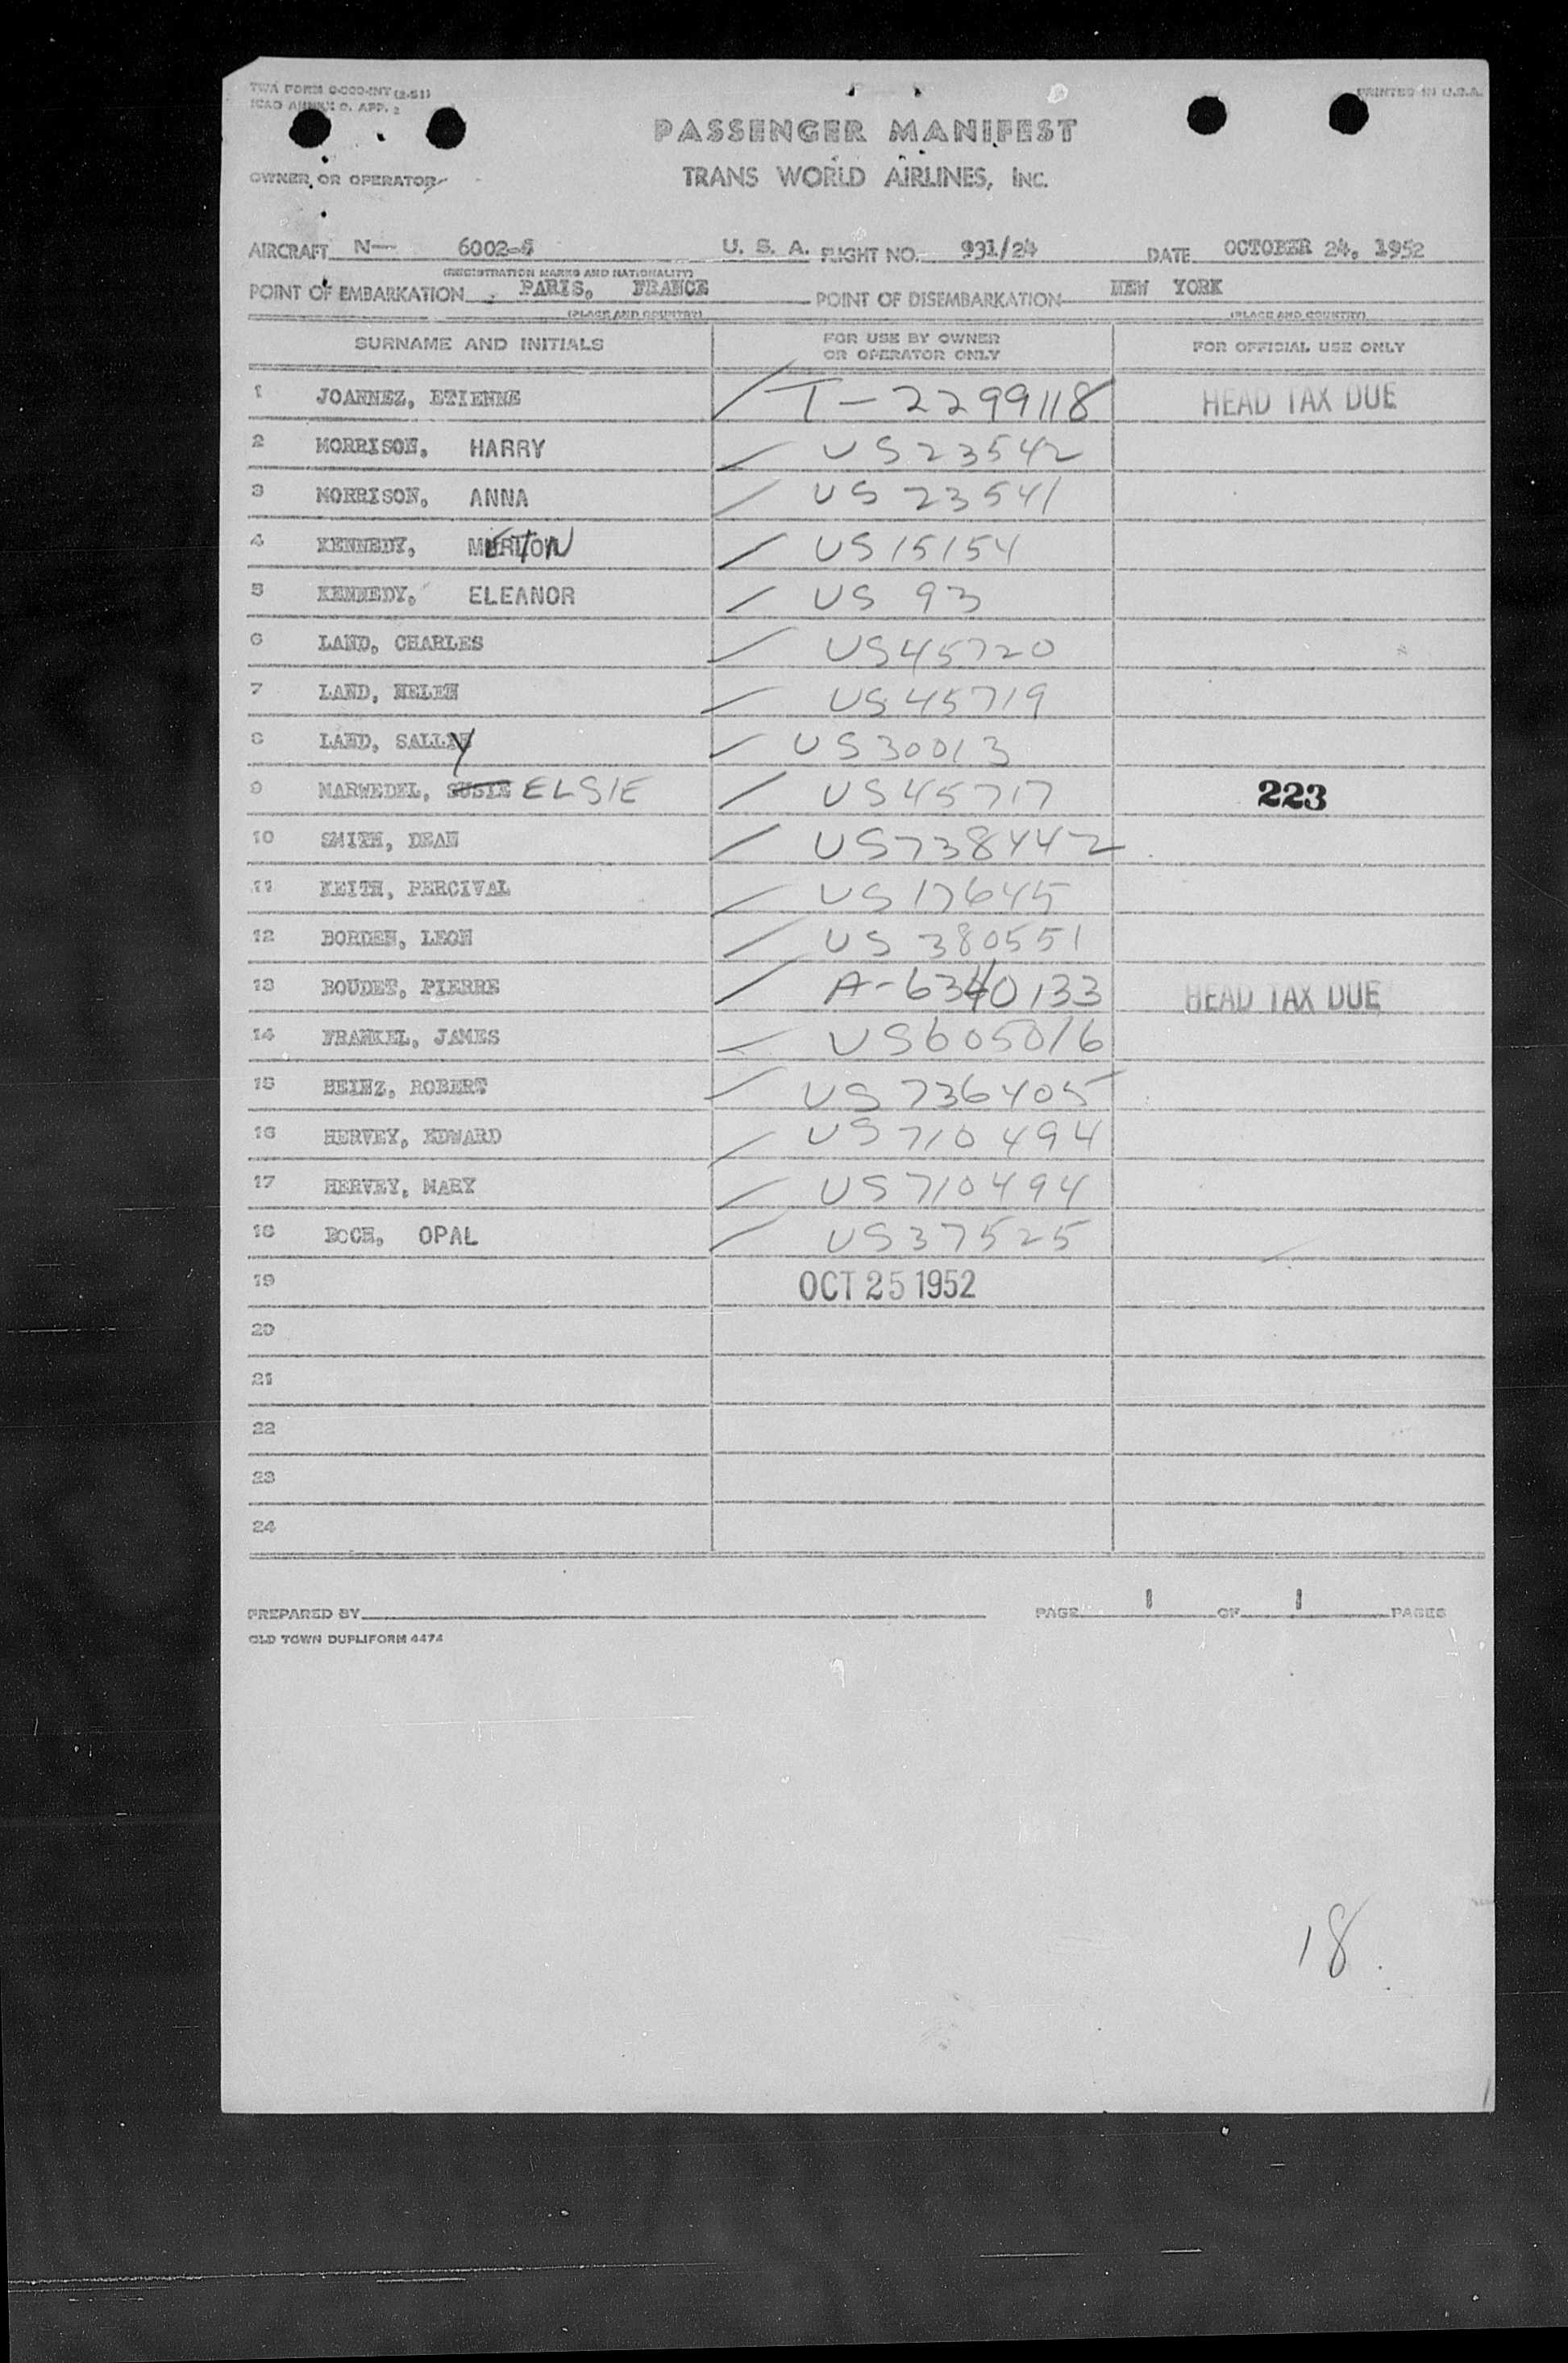 TWA FORM O-000-INT (2-51)
ICAO ANNEX 9. APP. 2
PRINTED IN U.S.A.
PASSENGER MANIFEST
OWNER OR OPERATOR
TRANS WORLD AIRLINES, INC.
AIRCRAFT N— 6002-5 U. S. A. FLIGHT NO. 931/24 DATE OCTOBER 24, 1952
(REGISTRATION MARKS AND NATIONALITY)
POINT OF EMBARKATION PARIS, FRANCE POINT OF DISEMBARKATION NEW YORK
(PLACE AND COUNTRY) (PLACE AND COUNTRY)
SURNAME AND INITIALS FOR USE BY OWNER OR OPERATOR ONLY FOR OFFICIAL USE ONLY
1 JOANNEZ, ETIENNE T-2299118 HEAD TAX DUE
2 MORRISON, HARRY US23542
3 MORRISON, ANNA US 23541
4 KENNEDY, US15154
5 KENNEDY, ELEANOR US 93
6 LAND, CHARLES US45720
7 LAND, HELEN US45719
8 LAND, SALLY US30013
9 MARWEDEL, SUSIE ELSIE US45717 223
10 SMITH, DEAN US738442
11 KEITH, PERCIVAL US17645
12 BORDEN, LEON US 380551
13 BOUDET, PIERRE A-6340133 HEAD TAX DUE
14 FRANKEL, JAMES US605016
15 HEINZ, ROBERT US736405
16 HERVEY, EDWARD US710494
17 HERVEY, MARY US710494
18 OPAL US37525
19 OCT 25 1952
20
21
22
23
24
PREPARED BY PAGE 1 OF 1 PAGES
OLD TOWN DUPLIFORM 4474
18